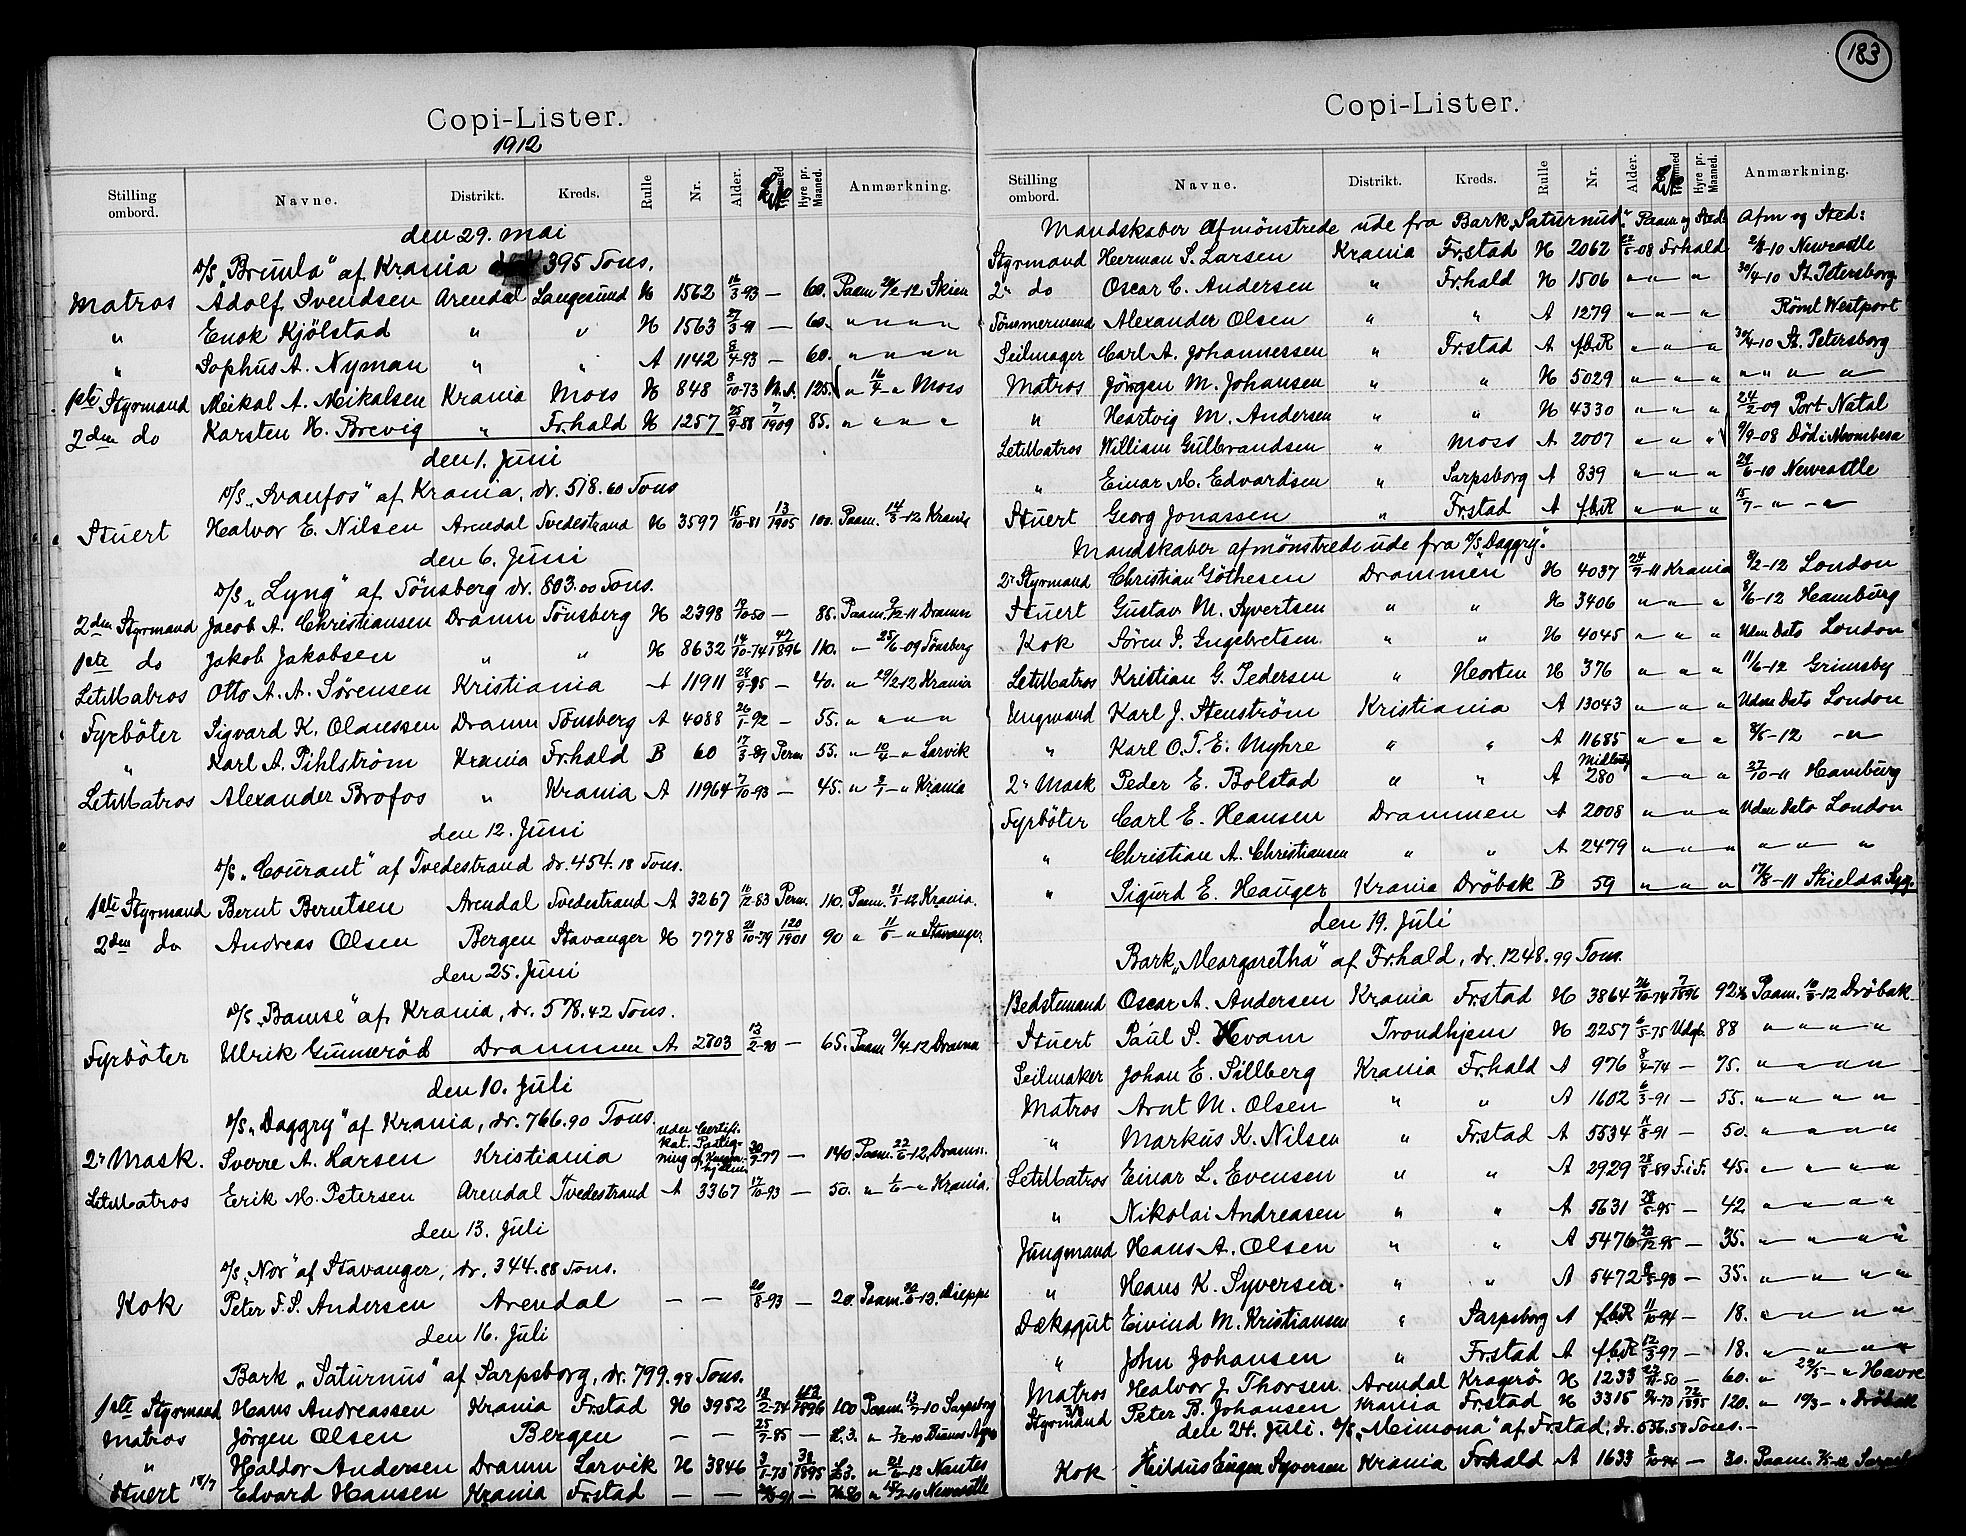 Copi-Lister.
1912
Stilling ombord. Navne. Distrikt. Kreds. Rulle Nr. Alder. Hyre pr. Maaned. Anmærkning.
den 29. mai
D/S „Brumla" af Krania 395 Tons.
Matros Adolf Svendsen Arendal Langesund H 1562 60. Paam. Skien
" Enok Kjölstad " " H 1563 27/3-91 — 60. " " " "
" Sophus A. Nyman " " A 1142 8/4-93 — 60. " " " "
1ste Styrmand Meikal A. Meikalsen Krania Moss H 848 8/10-73 M.A. 125. " 16/4 " Moss
2den do Karsten H. Brevig " Fr.hald H 1257 25/9-88 7/1909 85. " " " "
den 1. Juni
D/S „Svanfos" af Krania, dr. 518.60 Tons
Stuert Halvor E. Nilsen Arendal Tvedestrand H 3597 15/10-81 13/1905 100. Paam. 14/3-12 Krania
den 6. Juni
D/S „Lyng" af Tönsberg dr. 803.00 Tons.
2den Styrmand Jacob A. Christiansen Dramn Tönsberg H 2398 — 85. Paam. Dramn
1ste do Jakob Jakobsen " " H 8632 14/10-74 42/1896 110. — 25/6-09 Tönsberg
LetMatros Otto A. A. Sørensen Kristiania A 11911 — 40. " 29/2-12 Krania
Fyrböter Sigvard K. Olaussen Dramn Tönsberg A 4088 26/1-92 — 55. " " " "
" Karl A. Pihlström Krania Fr.hald B 60 17/3-89 Perm 55. " 10/4 - " Larvik
LetMatros Alexander Brofos " Krania A 11964 7/10-93 — 45. " " Krania
den 12. Juni
D/S „Courant" af Tvedestrand dr. 454.18 Tons.
1ste Styrmand Bernt Berntsen Arendal Tvedestrand A 3267 Perm. 110. Paam. Krania.
2den do Andreas Olsen Bergen Stavanger H 7778 21/10-79 120/1901 90 " " Stavanger.
den 25. Juni
D/S „Bamse" af Krania, dr. 578.42 Tons.
Fyrböter Ulrik Gunneröd Drammen A 2703 13/2-90 — 65. Paam. 9/4-12 Dramn
den 10. Juli
D/S „Daggry" af Krania, dr. 766.90 Tons.
2r Mask. Sverre A. Larsen Kristiania uden Certifikat. — 140 Paam. 22/6-12 Dramn.
LetMatros Erik M. Petersen Arendal Tvedestrand A 3367 17/10-93 — 50. " " Krania.
den 13. Juli
D/S „Nor" af Stavanger, dr. 344.88 Tons.
Kok Peter F. S. Andersen Arendal — — 20/8-93 — 20. Paam. Dieppe
den 16. Juli
Bark „Saturnus" af Sarpsborg, dr. 799.98 Tons.
1ste Styrmand Hans Andreassen Krania Fr.stad H 3952 100 Paam. Sarpsborg
Matros Jörgen Olsen Bergen — — 25/7-85 — £.3. " Buenos Ayres
" Haldor Andersen Dramn Larvik H 3846 £3. " 21/6-12 Nantes
Stuert 18/7 Edvard Hansen Krania Fr.stad — — — " Newcastle
183
Copi-Lister.
Stilling ombord. Navne. Distrikt. Kreds. Rulle Nr. Alder. Hyre pr. Maaned. Anmærkning.
Mandskaber afmönstrede ude fra Bark „Saturnus". Paam og Sted. Afm og Sted:
Styrmand Herman S. Larsen Krania Fr.stad H 2062 Fr.hald Newcastle
2n do Oscar C. Andersen " Fr.hald H 1506 " — " 30/4-10 St. Petersborg
Tömmermand Alexander Olsen " " A 1279 " — " Römt Westport
Seilmager Carl A. Johannessen " Fr.stad A f.b.R " — " 30/4-10 St. Petersborg
Matros Jörgen M. Johansen " " H 5029 " — " " " "
" Hartvig M. Andersen " " H 4330 " — " 24/2-09 Port Natal
LetMatros William Gulbrandsen " Moss A 2007 " — " 9/9-08 Död i
" Einar M. Edvardsen " Sarpsborg A 839 " — " Newcastle
Stuert Georg Jonassen " Fr.stad A f.b.R " — " 15/7 - " - "
Mandskaber afmönstrede ude fra D/S „Daggry".
2r Styrmand Christian Göthesen Drammen H 4037 Krania London
Stuert Gustav M. Syvertsen " " H 3406 " — " 8/6-12 Hamburg
Kok Sören P. Engebretsen " " H 4045 " — " Uden Dato London
LetMatros Kristian G. Pedersen " Horten H 376 " — " 11/6-12 Grimsby
Ungmand Karl J. Stenström Kristiania A 13043 " — " Uden Dato London
" Karl O. T. E. Myhre " " A 11685 " — " - "
2r Mask Peder E. Bolstad " " A 280 " — " 27/10-11 Hamburg
Fyrböter Carl E. Hansen Drammen A 2008 " — " Uden Dato London
" Christian A. Christiansen " " A 2479 " — " " — "
" Sigurd E. Hauger Krania Dröbak B 59 " — " 17/8-11 Shields
den 19. Juli
Bark „Margaretha" af Fr.hald, dr. 1248.99 Tons.
Bedstemand Oscar A. Andersen Krania Fr.stad H 3864 7/1896 Paam. Dröbak
Stuert Paul P. Kvam Trondhjem H 2257 88 " " " "
Seilmaker Johan E. Sillberg Krania Fr.hald A 976 8/4-74 — 75. " " " "
Matros Arnt M. Olsen " " A 1602 — 55. " " " "
" Markus K. Nilsen " Fr.stad A 5534 11/8-91 — 50. " " " "
LetMatros Einar L. Evensen " " A 2929 45. " " " "
" Nikolai Andreasen " " A 5631 — 42 " " " "
Jungmand Hans A. Olsen " " A 5476 — 35. " " " "
" Hans K. Syversen " " A 5472 — 35. " " " "
Dæksgut Eivind M. Kristiansen " Sarpsborg A f.b.R 11/10-94 — 18. " " " "
" John Johansen " Fr.stad A f.b.R 12/3-97 — 18. " " " "
Matros Halvor J. Thorsen Arendal Kragerö H 1233 — 60. " 22/5 - " Havre
Styrmand Peter B. Johansen Krania Fr.stad H 3315 120. " " Dröbak
den 24. Juli. D/S „Meimona" af Fr.stad, dr. 636.58 Tons.
Kok Hildus Eugen Syversen Krania Fr.hald A 1633 — 30. Paam.